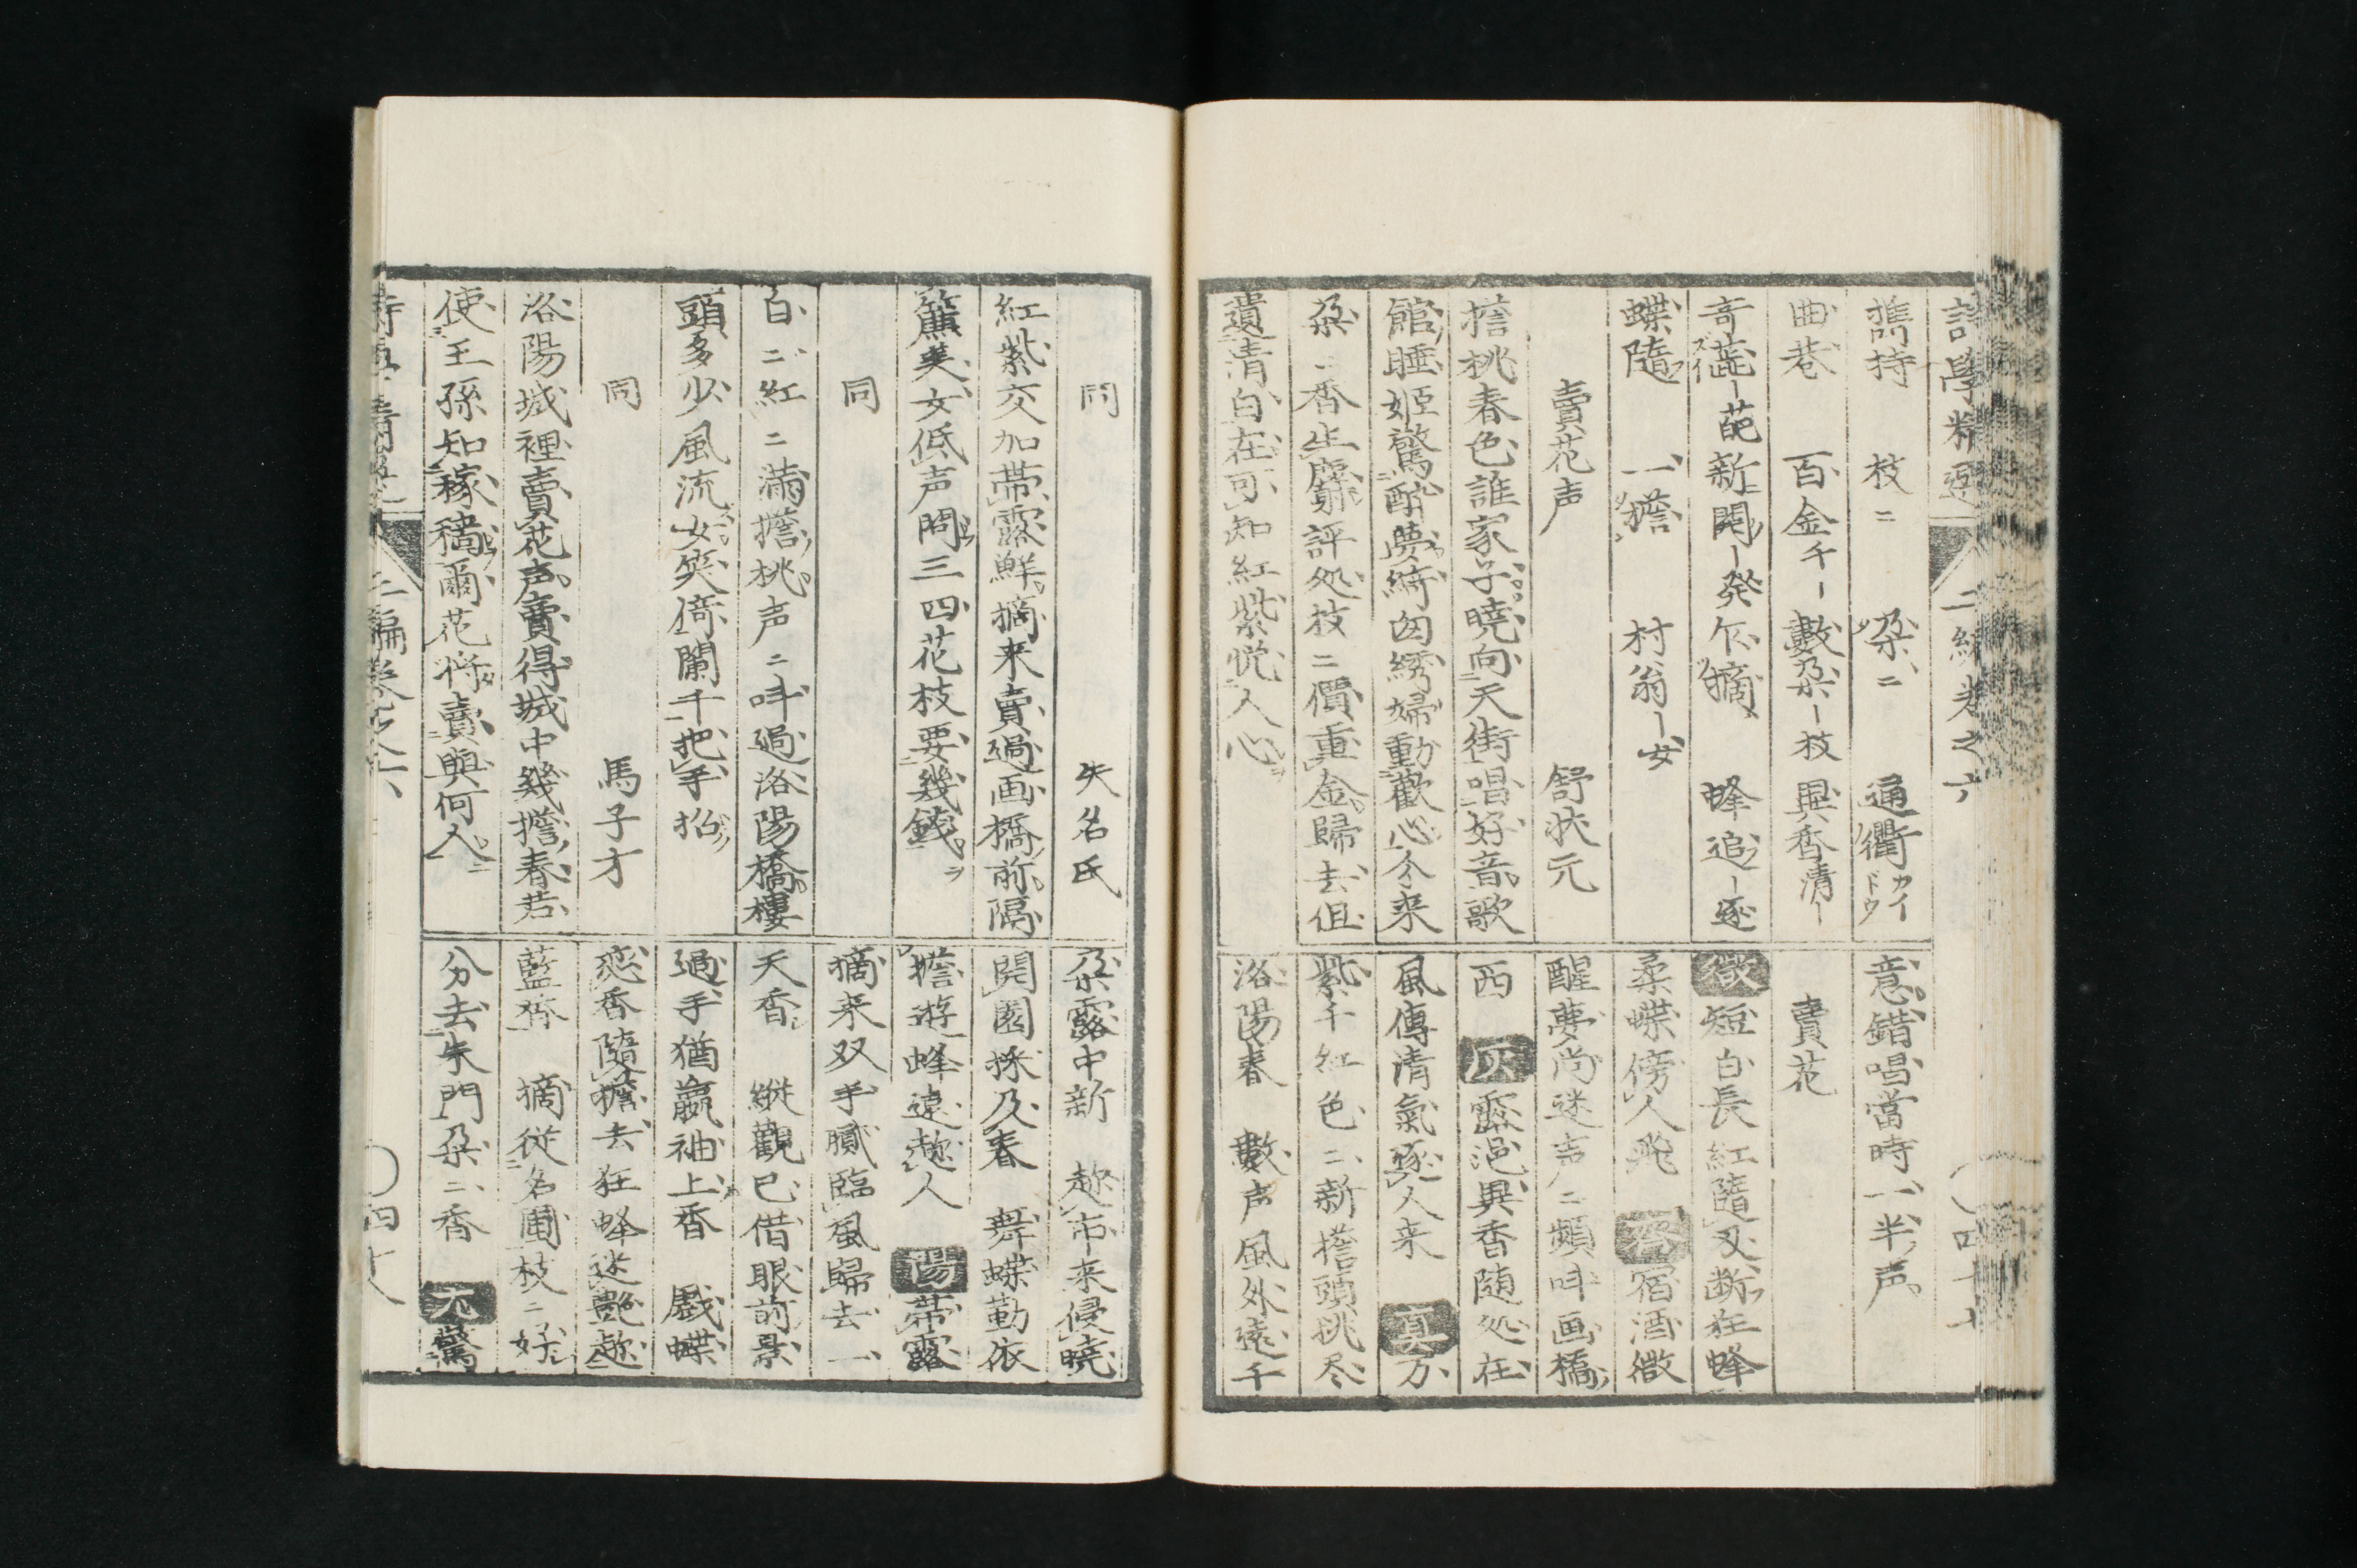 詩學精選 二編巻之六
携持 枝〻 朶〻 通衢カイドウ
曲巷 百金千｜ 數朶｜枝 異香清｜
奇蘤｜葩 新開｜発 乍摘 蜂追｜逐
蝶隨 一擔 村翁｜女
賣花声 舒状元
擔桃春色誰家子暁向天街唱好音歌
館睡姫驚酔夢綺囱綉婦動歡心今来
朶〻香生麝評処枝〻價重金歸去但
遺清白在可知紅紫悦人心
意錯唱當時一半声
賣花
微 短白長紅隨又断狂蜂
柔蝶傍人飛 宿酒微
醒夢尚迷声〻頻呌画橋
西 灰 露浥異香随処在
風傳清氣逐人来 真 万
紫千紅色〻新擔頭挑尽
洛陽春 數声風外遠千
四十七
同 失名氏
紅紫交加帯露鮮摘来賣過画橋前隔
簾美女低声問三四花枝要幾銭
同
白〻紅〻満擔桃声〻呌過洛陽橋樓
頭多少風流女笑倚闌干把手招
同 馬子才
洛陽城裡賣花声賣得城中幾擔春若
使王孫知稼穡爾花将賣與何人
朶露中新 趁市来侵暁
開園採及春 舞蝶勤依
擔遊蜂遠趁人 陽 帯露
摘来双手膩臨風歸去一
天香 縦觀已借眼前景
過手猶贏袖上香 戯蝶
恋香隨擔去狂蜂迷艶趁
藍 摘従名圃枝〻好
分去朱門朶〻香 元 驚
二編巻之六
四十八